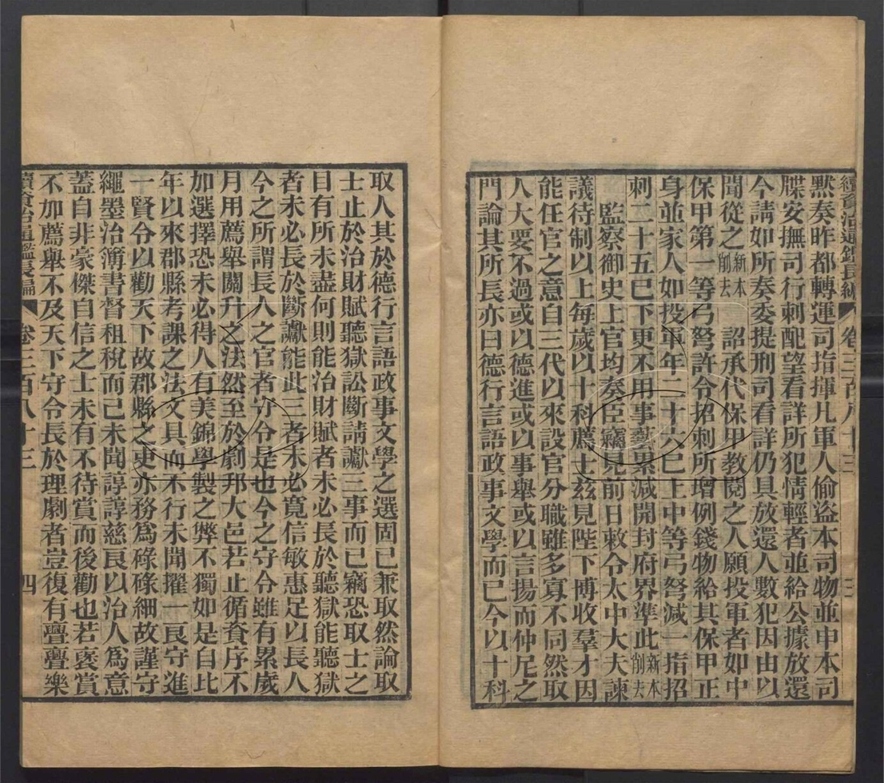 續資治通鑑長編 卷三百八十三 三
黙奏昨都轉運司指揮凡軍人偷盜本司物並申本司
牒安撫司行刺配望看詳所犯情輕者並給公據放還
今請如所奏委提刑司看詳仍具放還人數犯因由以
聞從之新本削去 詔承代保甲教閱之人願投軍者如中
保甲第一等弓弩許令招刺所增例錢物給其保甲正
身並家人如投軍年二十六已上中等弓弩減一指招
刺二十五已下更不用事藝累減開封府界準此新本削去
監察御史上官均奏臣竊見前日敕令太中大夫諫
議待制以上每歲以十科薦士茲見陛下博收羣才因
能任官之意自三代以來設官分職雖多寡不同然取
人大要不過或以德進或以事舉或以言揚而仲尼之
門論其所長亦曰德行言語政事文學而已今以十科
取人其於德行言語政事文學之選固已兼取然論取
士止於治財賦聽獄訟斷請讞三事而已竊恐取士之
目有所未盡何則能治財賦者未必長於聽獄能聽獄
者未必長於斷讞能此三者未必寬信敏惠足以長人
今之所謂長人之官者守令是也今之守令雖有累歲
月用薦舉關升之法然至於劇邦大邑若止循資序不
加選擇恐未必得人有美錦學製之弊不獨如是自比
年以來郡縣考課之法文具而不行未聞擢一良守進
一賢令以勸天下故郡縣之吏亦務爲碌碌細故謹守
繩墨治簿書督租稅而已未聞諄諄慈良以治人爲意
蓋自非豪傑自信之士未有不待賞而後勸也若襃賞
不加薦舉不及天下守令長於理劇者豈復有亹亹樂
續資治通鑑長編 卷三百八十三 四